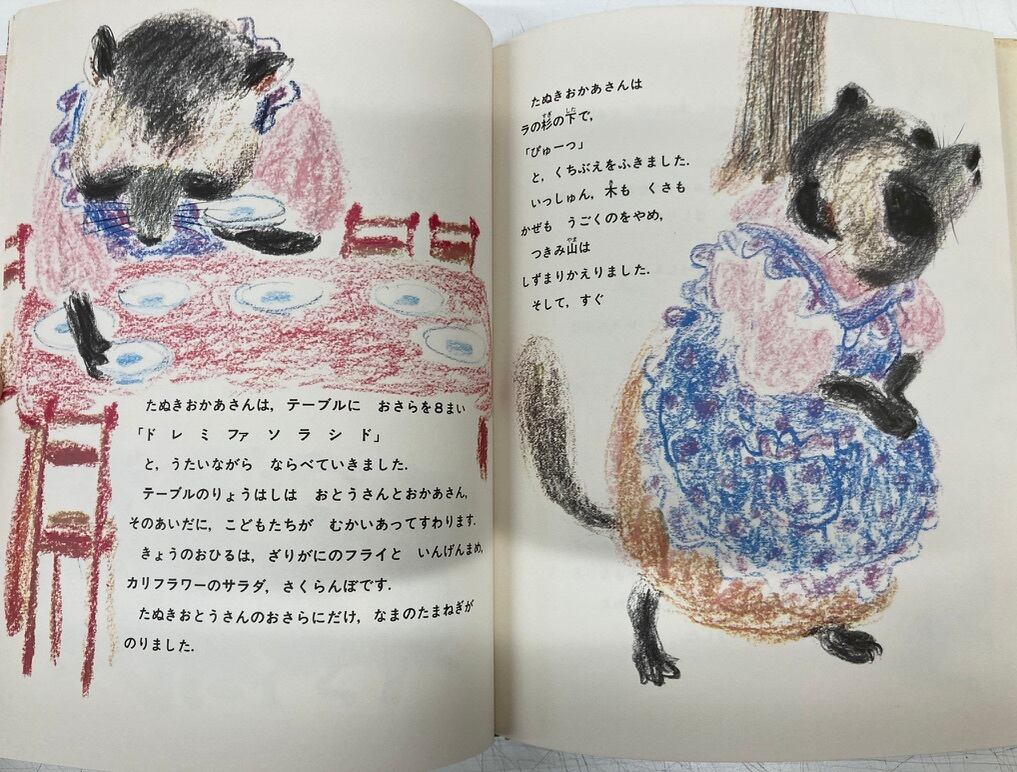 たぬきおかあさんは，テーブルに　おさらを8まい
「ド　レ　ミ　ファ　ソ　ラ　シ　ド」
と，うたいながら　ならべていきました．
テーブルのりょうはしは　おとうさんとおかあさん，
そのあいだに，こどもたちが　むかいあってすわります．
きょうのおひるは，ざりがにのフライと　いんげんまめ，
カリフラワーのサラダ，さくらんぼです．
たぬきおとうさんのおさらにだけ，なまのたまねぎが
のりました．
たぬきおかあさんは
ラの杉の下で，
「ぴゅーっ」
と，くちぶえをふきました．
いっしゅん，木も　くさも
かぜも　うごくのをやめ，
つきみ山は
しずまりかえりました．
そして，すぐ